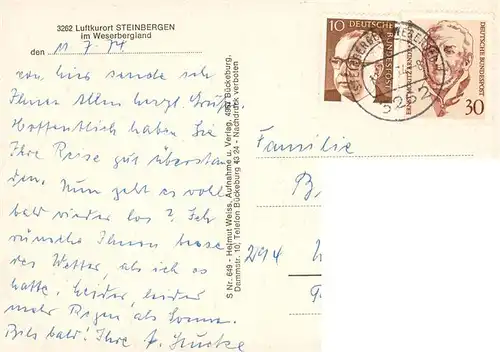 3262 Luftkurort STEINBERGEN
im Weserbergland
den 11. 7. 74
von hier sende ich
Ihnen Allen herzl. Grüße.
Hoffentlich haben Sie
Ihre Reise gut überstan-
den. Nun geht es wohl
bald wieder los? Ich
wünsche Ihnen besse-
res Wetter, als ich es
hatte. Leider, leider
mehr Regen als Sonne.
Bis bald! Ihre
S Nr. 649 - Helmut Weiss, Aufnahme u. Verlag, 4967 Bückeburg,
Dammstr. 10, Telefon Bückeburg 43 24 - Nachdruck verboten
10
DEUTSCHE BUNDESPOST
DEUTSCHE BUNDESPOST
30
3262
Familie
B